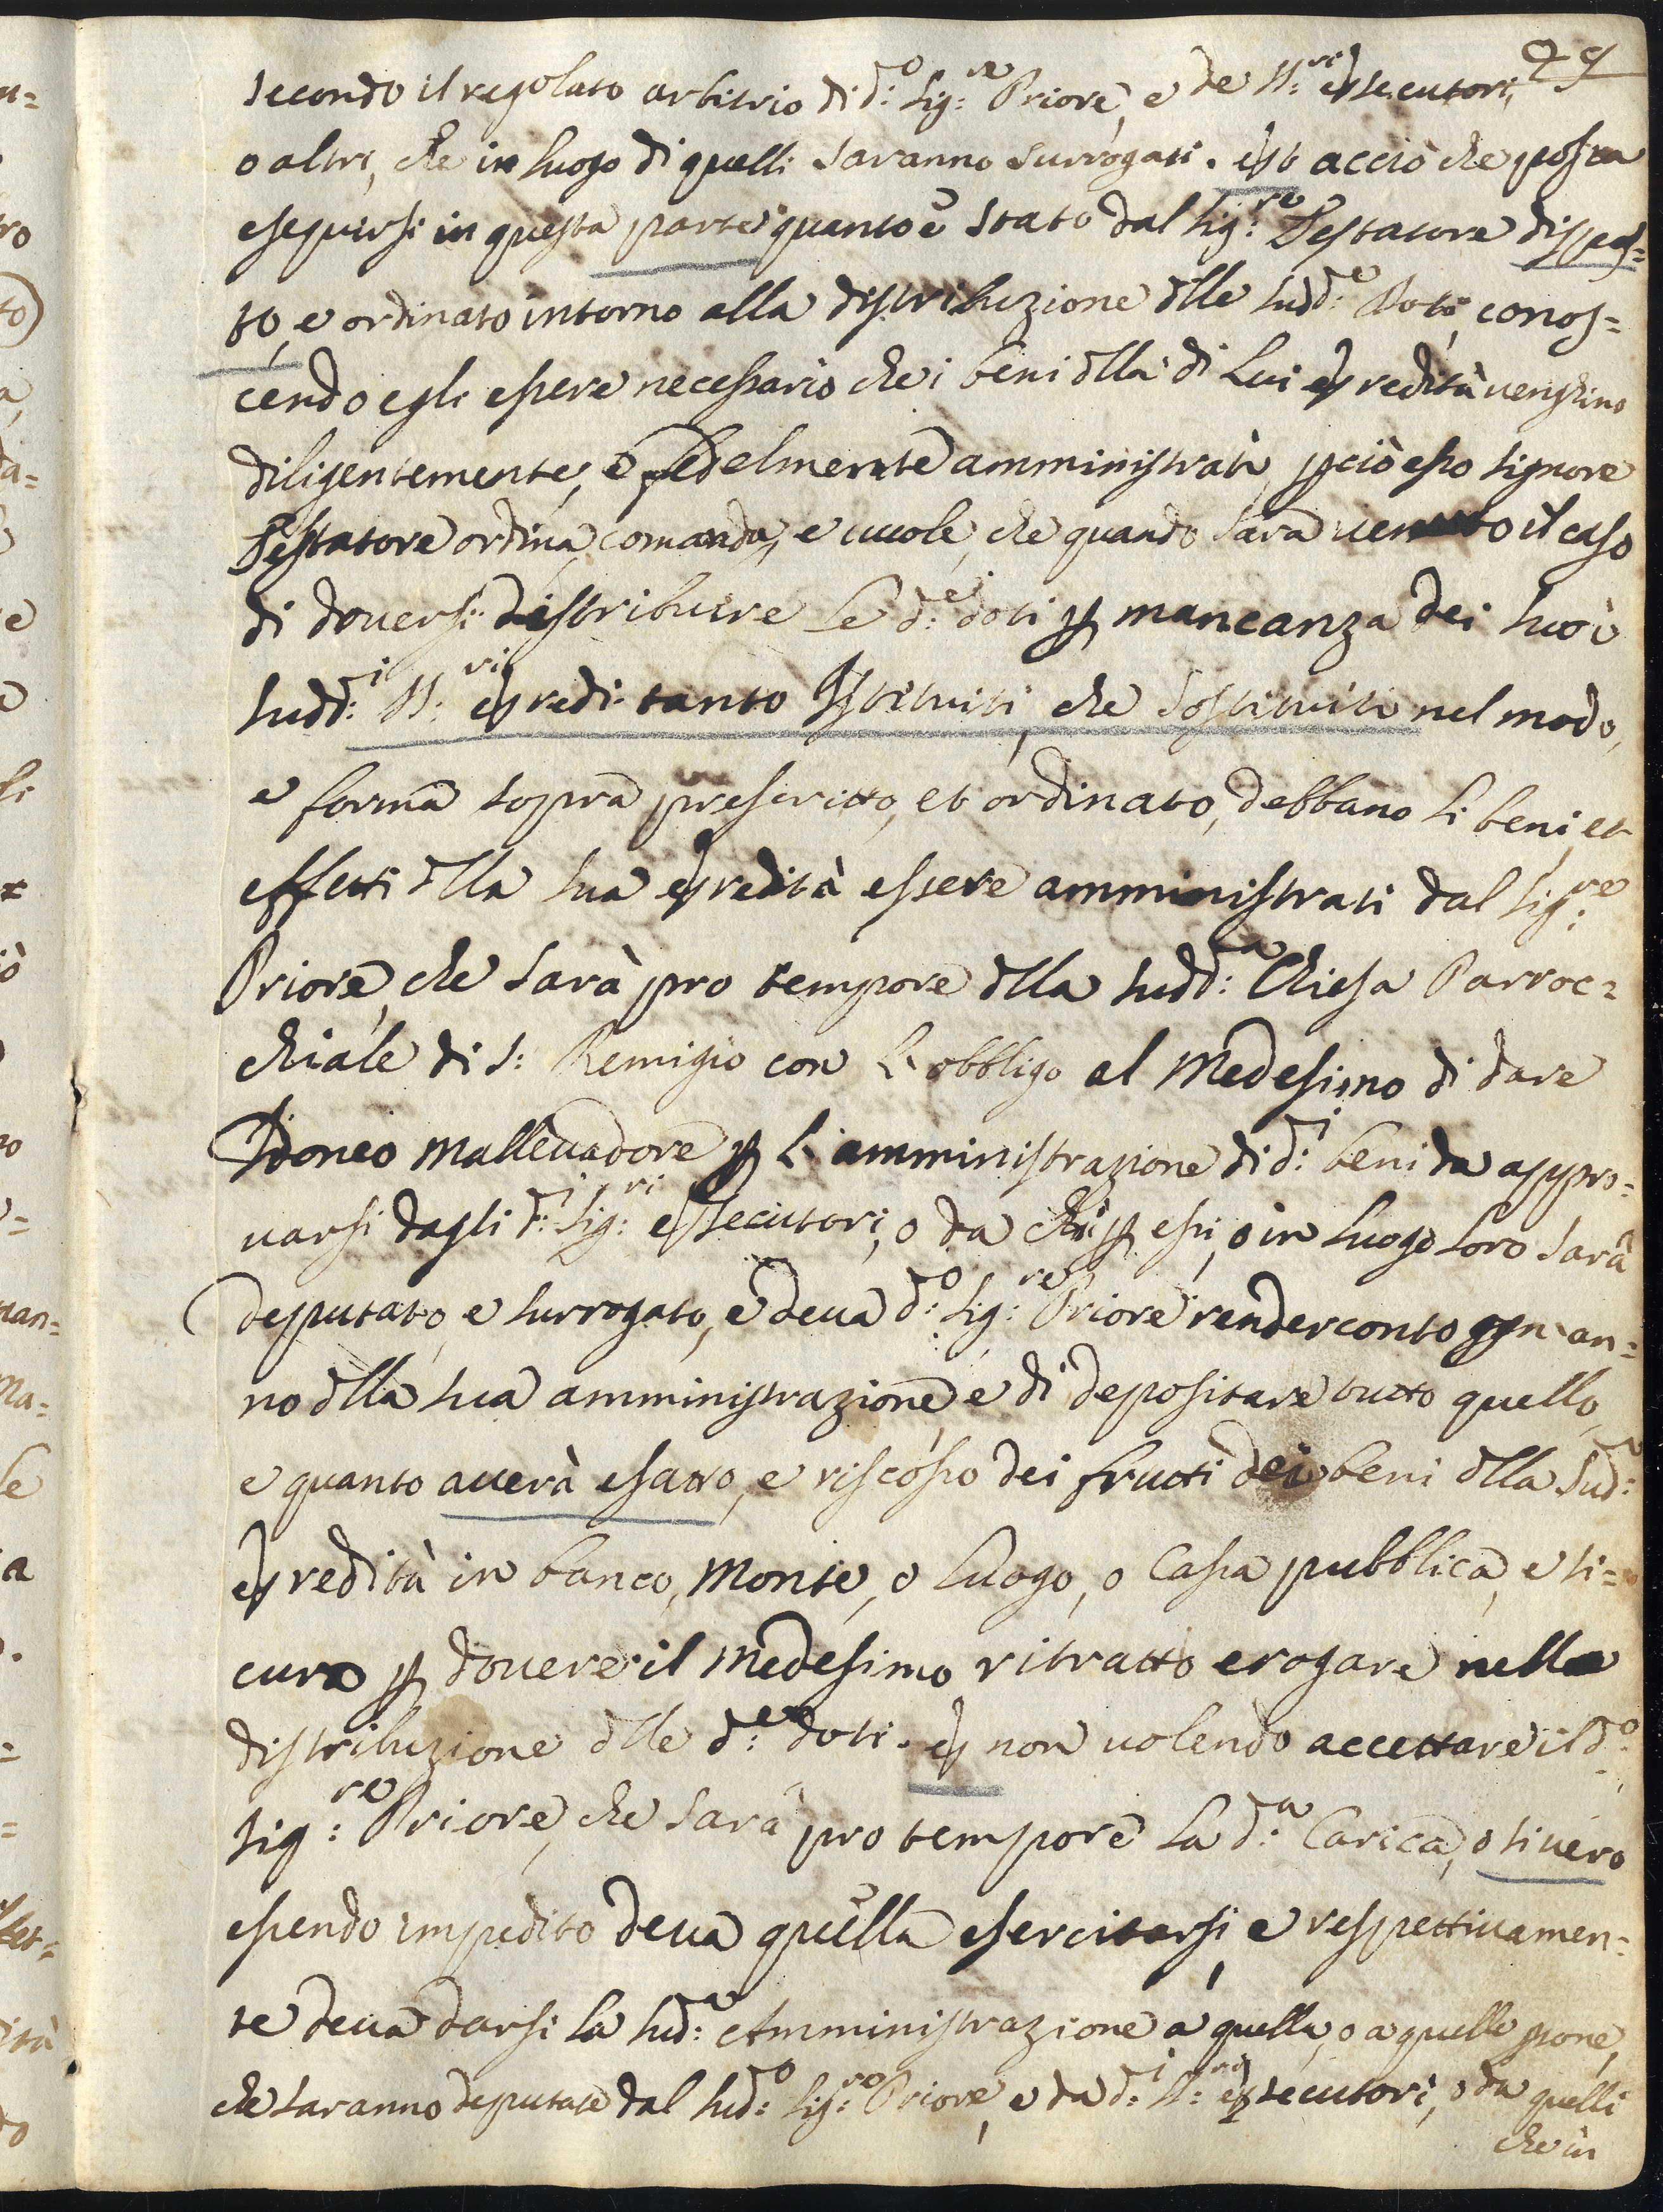 29
secondo il regolato arbitrio di d:o Sig:re Priore, e de SS:ri Esecutori,
o altri, che in luogo di quelli saranno surrogati. Et acciò che possa
eseguirsi in questa parte quanto è stato dal Sig:re Testatore dispos=
to, e ordinato intorno alla distribuzione dlle sudd:e Doti, conos=
cendo egli essere necessario che i beni dlla di Lui Eredità venghino
diligentemente, e fedelmente amministrati, pciò esso Signore
Testatore ordina, comanda, e vuole, che quando sarà venuto il caso
di doversi distribuire le d:e doti p mancanza dei suoi
sudd:i SS:ri Eredi tanto Istituiti, che Sostituiti nel modo,
e forma sopra prescritto, et ordinato, debbano li beni, et
effetti dlla sua Eredità essere amministrati dal Sig:re
Priore, che sarà pro tempore dlla sudd:a Chiesa Parroc=
chiale di S: Remigio con l'obbligo al Medesimo di dare
Idoneo Mallevadore p l'amministrazione di d:i beni da appro=
varsi dagli d:i Sig:ri Esecutori, o da chi p essi, o in luogo loro sarà
deputato, e surrogato, e deva d:o Sig:re Priore render conto ogn' an=
no dlla sua amministrazione, e di depositare tutto quello,
e quanto averà esatto, e riscosso dei frutti dei beni dlla sud:a
Eredità in banco, Monte, o Luogo, o Cassa pubblica, e si=
cura p dovere il Medesimo ritratto erogare nella
distribuzione dlle d:e doti. E non volendo accettare il d:o
Sig:re Priore, che sarà pro tempore la d:a Carica, o si vero
essendo impedito deva quella esercitarsi, e respettivamen=
te deva darsi la sud:a Amministrazione a quella, o a quelle psone,
che saranno deputate dal sud:o Sig:re Priore, e da d:i SS:ri Esecutori, o da quelli
che in